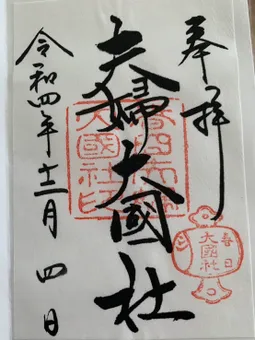 奉拝
夫婦大國社
令和四年十二月四日
春日夫婦
大國社印
春日
大國社